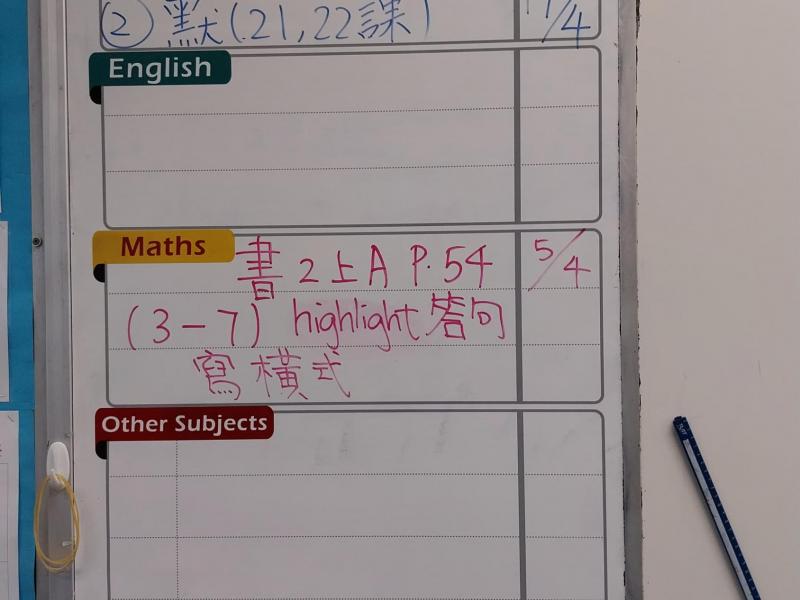 ② 默(21,22課)
English
Maths
書 2上A P.54 5/4
(3-7) highlight答句
寫橫式
Other Subjects